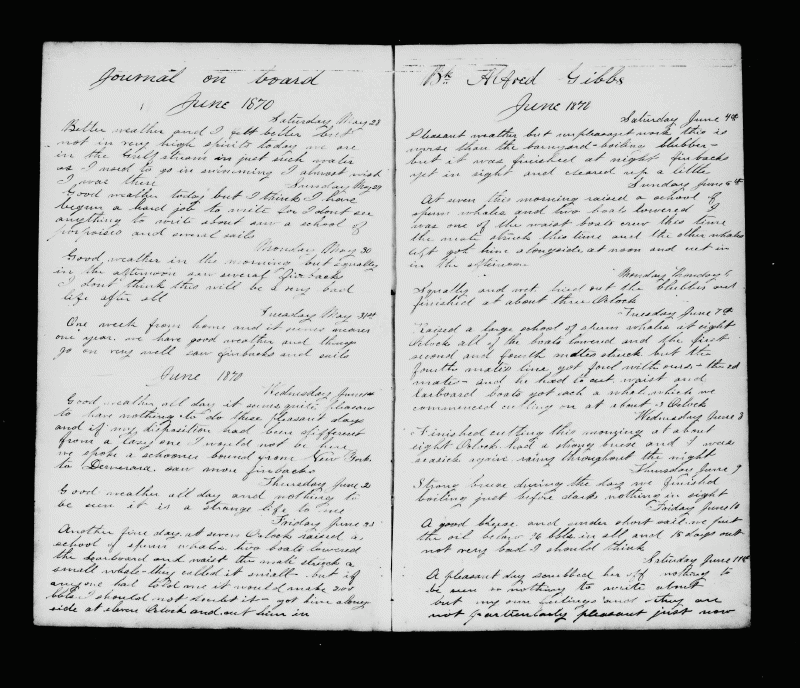 Journal on board
June 1870
Saturday May 28
Better weather and I felt better but
not in very high spirits today we are
in the Gulf stream in just such water
as I used to go in swimming I almost wish
I was there
Sunday May 29
Good weather today but I think I have
begun a hard job to write for I dont see
anything to write about saw a school of
porpoises and several sails
Monday May 30
Good weather in the morning but squally
in the afternoon saw several finbacks
I dont think this will be a very bad
life after all
Tuesday May 31st
One week from home and it seems nearer
one year. we have good weather and things
go on very well saw finbacks and sails
June 1870
Wednesday June
Good weather all day it seems quite pleasant
to have nothing to do these pleasant days
and if my disposition had been different
from a lazy one I would not be here
we spoke a schooner bound from New York
to Demerara. saw more finbacks
Thursday June 2
Good weather all day and nothing to
be seen it is a strange life to me
Friday June 3
Another fine day. at seven Oclock raised a
school of sperm whales two boats lowered
the starboard and waist the mate struck a
small whale - they called it small - but if
anyone had told me it would make 200
bbls I should not doubt it - got him along
side at eleven Oclock and cut him in
Bk Alfred Gibbs
June 1870
Saturday June 4th
Pleasant weather but unpleasant work this is
worse than the barnyard - boiling blubber -
but it was finished at night finbacks
yet in sight and cleared up a little
Sunday June 5th
At seven this morning raised a school of
sperm whales and two boats lowered I
was one of the waist boats crew this time
the mate struck this time and the other whales
left got him alongside at noon and cut in
in the afternoon
Monday June 6
Squally and wet. tried out the blubber and
finished at about three Oclock
Tuesday June 7th
Raised a large school of sperm whales at eight
Oclock all of the boats lowered and the first
second and fourth mates struck but the
fourth mates line got foul with ours - the 2d
mates - and he had to cut waist and
larboard boats got each a whale which we
commenced cutting on at about 3 Oclock
Wednesday June 8
Finished cutting this morning at about
eight Oclock had a strong breeze and I was
seasick again rainy throughout the night
Thursday June 9
Strong breeze during the day we finished
boiling just before dark nothing in sight
Friday June 10
A good breeze and under short sail we put
the oil below 76 bbls in all and 18 days out
not very bad I should think
Saturday June 11th
A pleasant day scrubbed her off nothing to
be seen or nothing to write about
but my own feelings and they are
not particularly pleasant just now